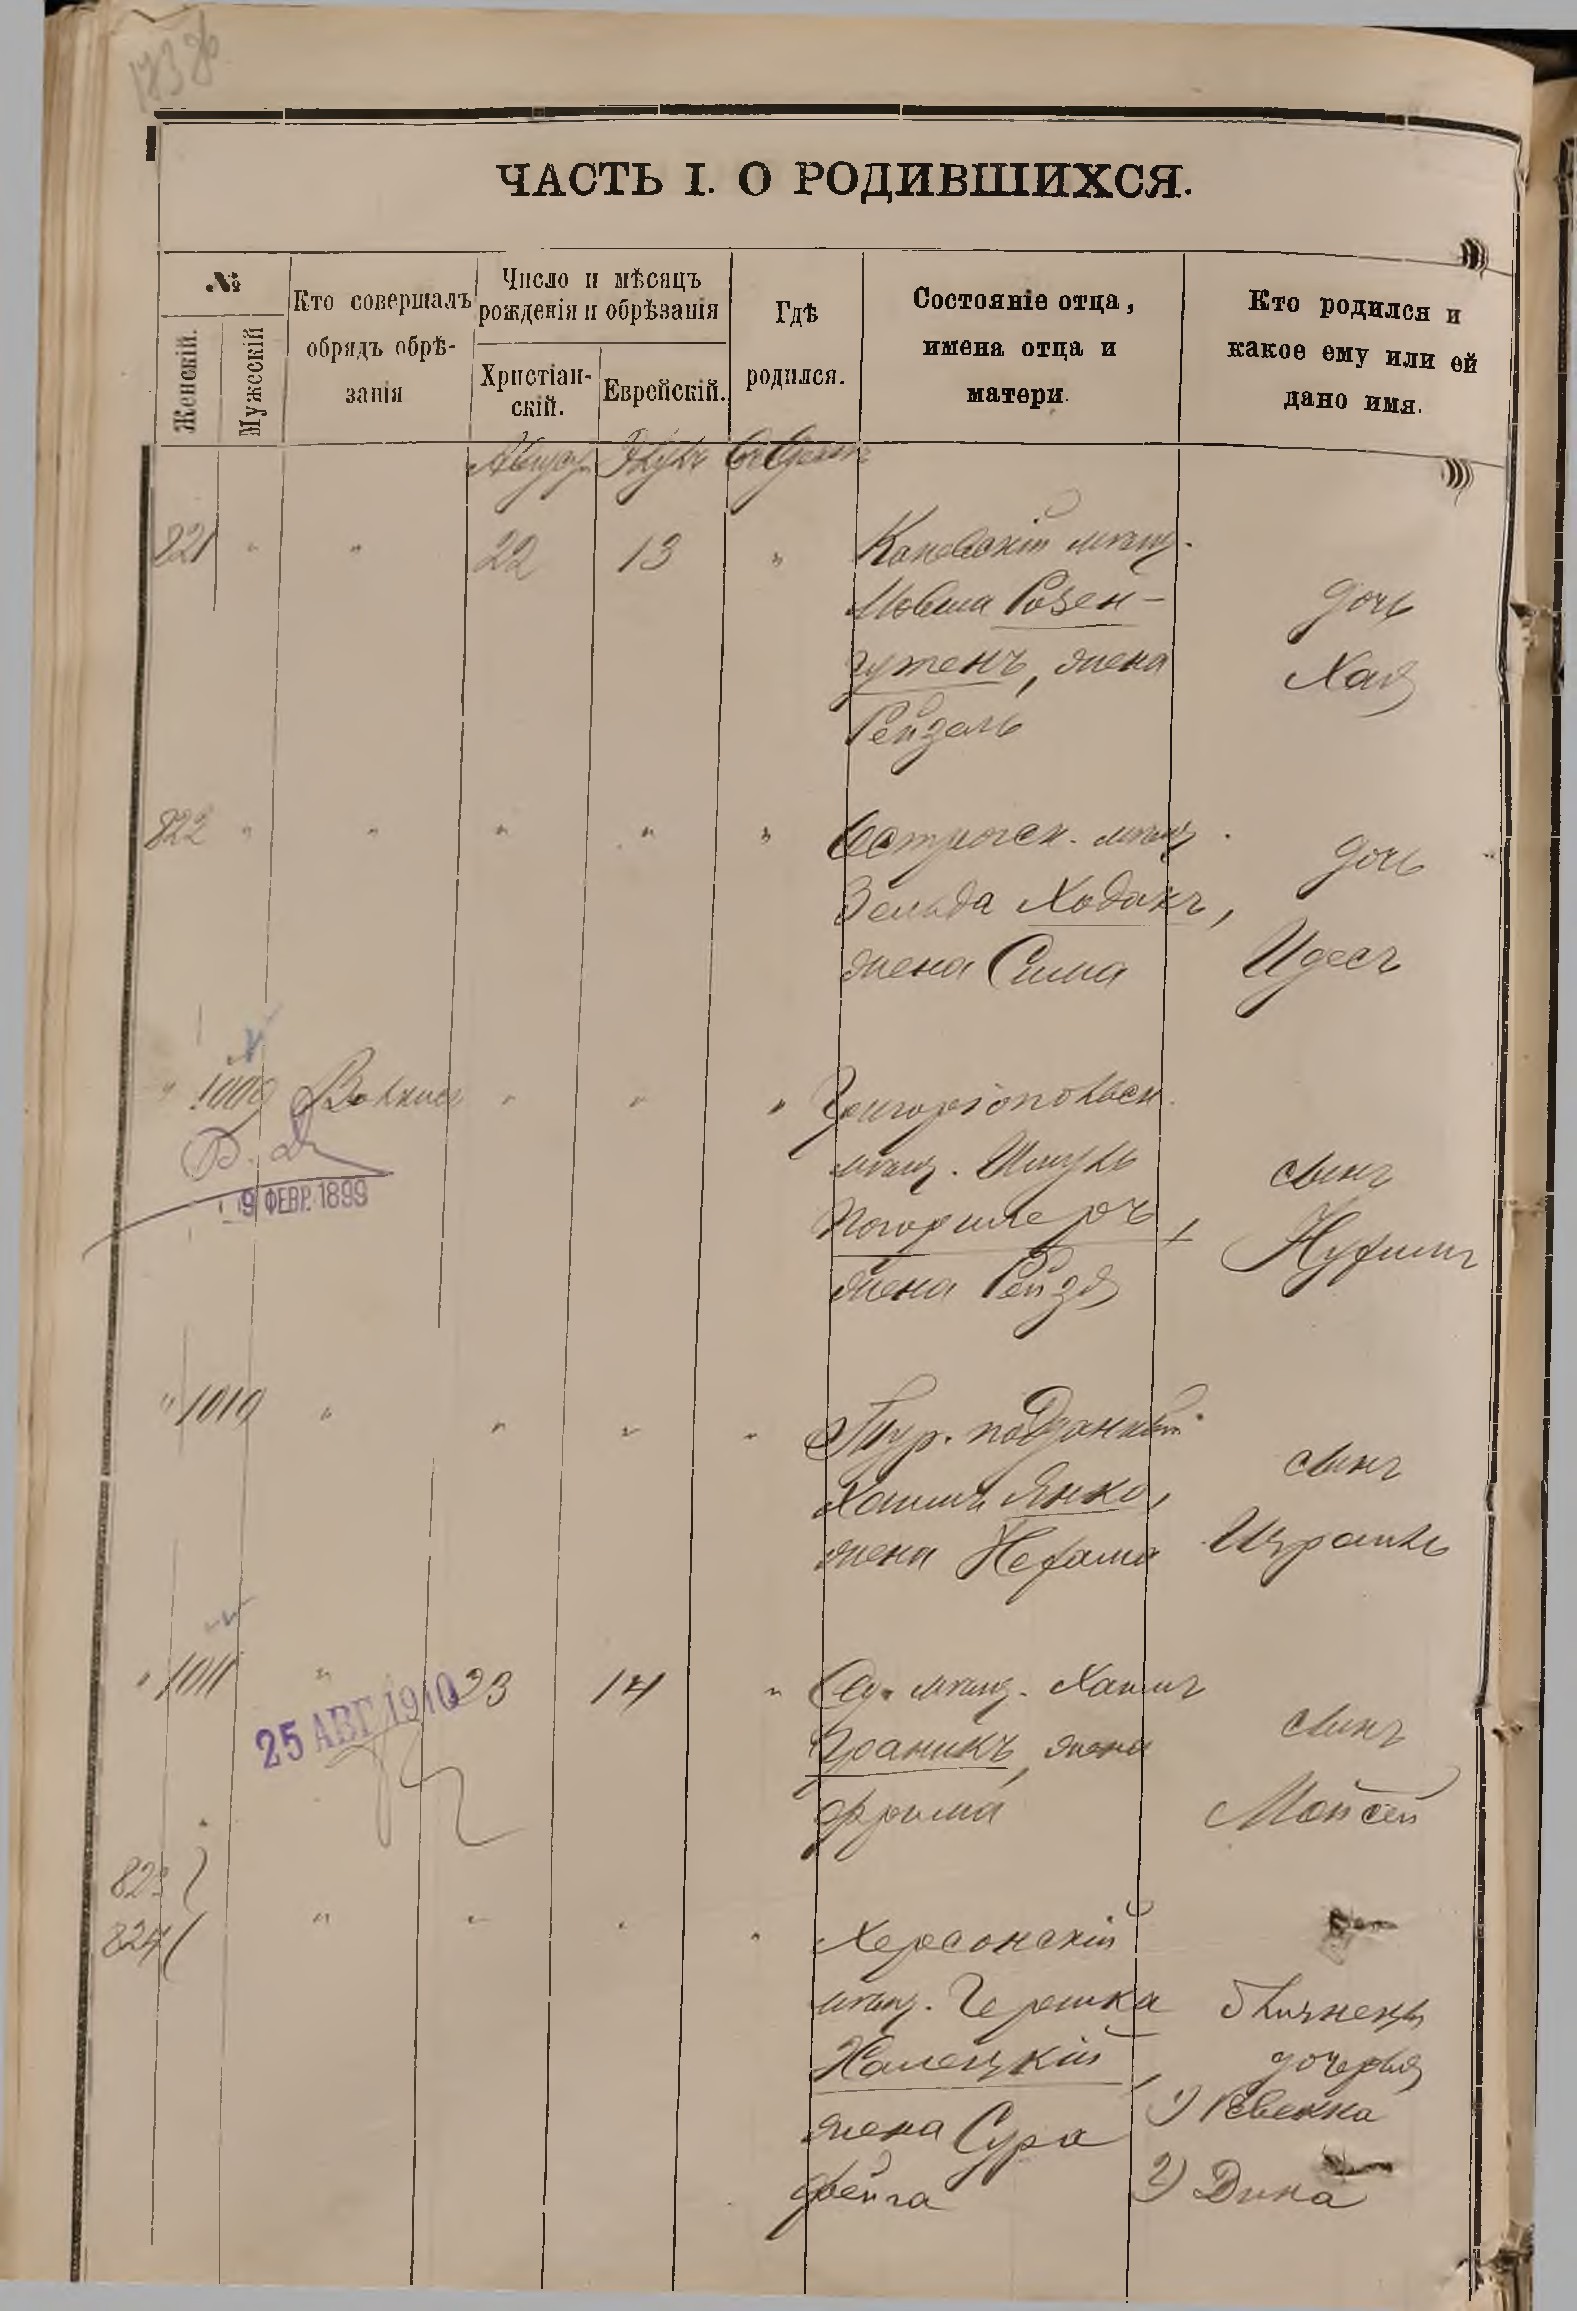 ЧАСТЬ I. О РОДИВШИХСЯ.
№
Женскій.
Мужескій
Кто совершалъ
обрядъ обрѣ-
занія
Число и мѣсяцъ
рожденія и обрѣзанія
Христіан-
скій.
Еврейскій.
Гдѣ
родился.
Состояніе отца,
имена отца и
матери.
Кто родился и
какое ему или ей
дано имя.
Август Элулъ Въ Одессѣ
821 " " 22 13 " Каневскій мѣщ.
Мовша Розен-
гутенъ, жена
Рейзель
дочь
Хая
822 " " " " " Острогск. мѣщ.
Зельда Ходакъ,
жена Сима
дочь
Идесъ
" 1009 " " "
мѣщ. Шмуль
жена Рейзя
сынъ
Нухимъ
9 ФЕВР. 1899
" 1010 " " " " Тур. подданный
Хаимъ Янко,
жена Нехама
сынъ
Израиль
" 1011 " 23 14 " Од. мѣщ. Хаимъ
Граникъ, жена
Фрима
сынъ
Мойсей
25 АВГ 1910
823
824 " " " " Херсонскій
мѣщ. Гершка
Налецкій,
жена Сура
Фейга
близнецы
дочерья
1) Ревекка
2) Дина